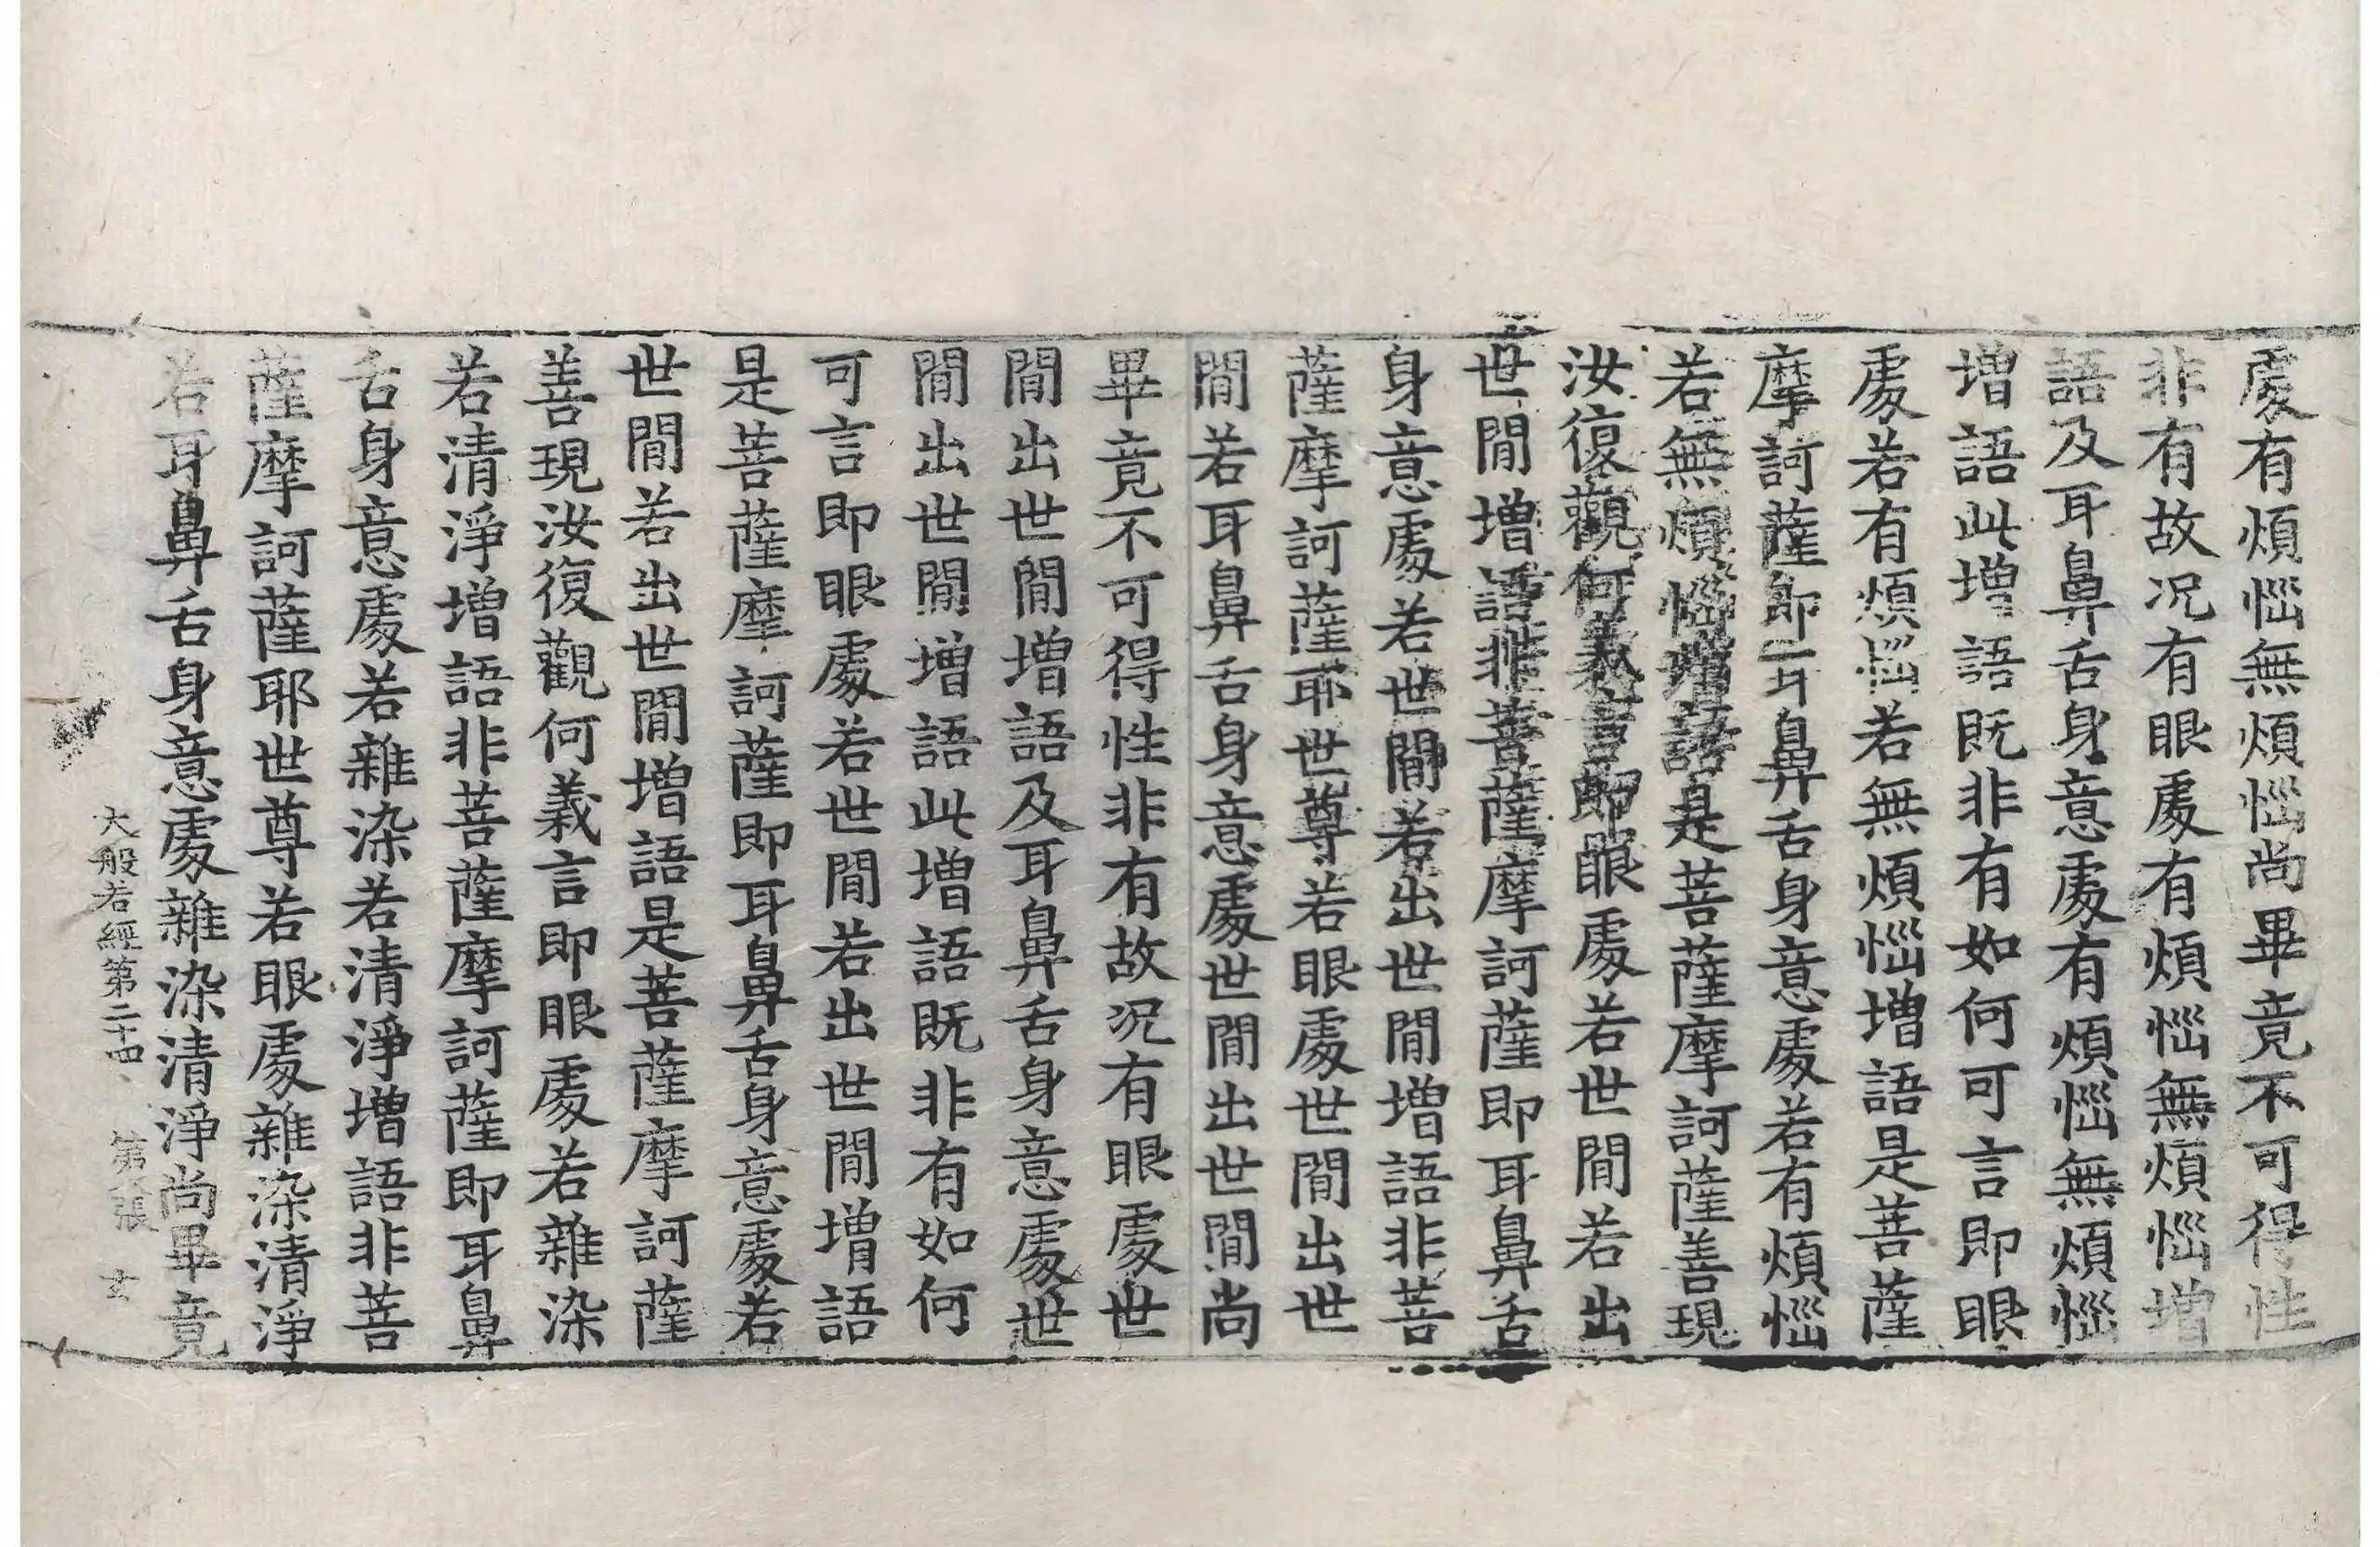 處有煩惱無煩惱尚畢竟不可得性
非有故況有眼處有煩惱無煩惱增
語及耳鼻舌身意處有煩惱無煩惱
增語此增語既非有如何可言即眼
處若有煩惱若無煩惱增語是菩薩
摩訶薩即耳鼻舌身意處若有煩惱
若無煩惱增語是菩薩摩訶薩善現
汝復觀何義言即眼處若世間若出
世間增語非菩薩摩訶薩即耳鼻舌
身意處若世間若出世間增語非菩
薩摩訶薩耶世尊若眼處世間出世
間若耳鼻舌身意處世間出世間尚
畢竟不可得性非有故況有眼處世
間出世間增語及耳鼻舌身意處世
間出世間增語此增語既非有如何
可言即眼處若世間若出世間增語
是菩薩摩訶薩即耳鼻舌身意處若
世間若出世間增語是菩薩摩訶薩
善現汝復觀何義言即眼處若雜染
若清淨增語非菩薩摩訶薩即耳鼻
舌身意處若雜染若清淨增語非菩
薩摩訶薩耶世尊若眼處雜染清淨
若耳鼻舌身意處雜染清淨尚畢竟
大般若經第二十四 第張 玄